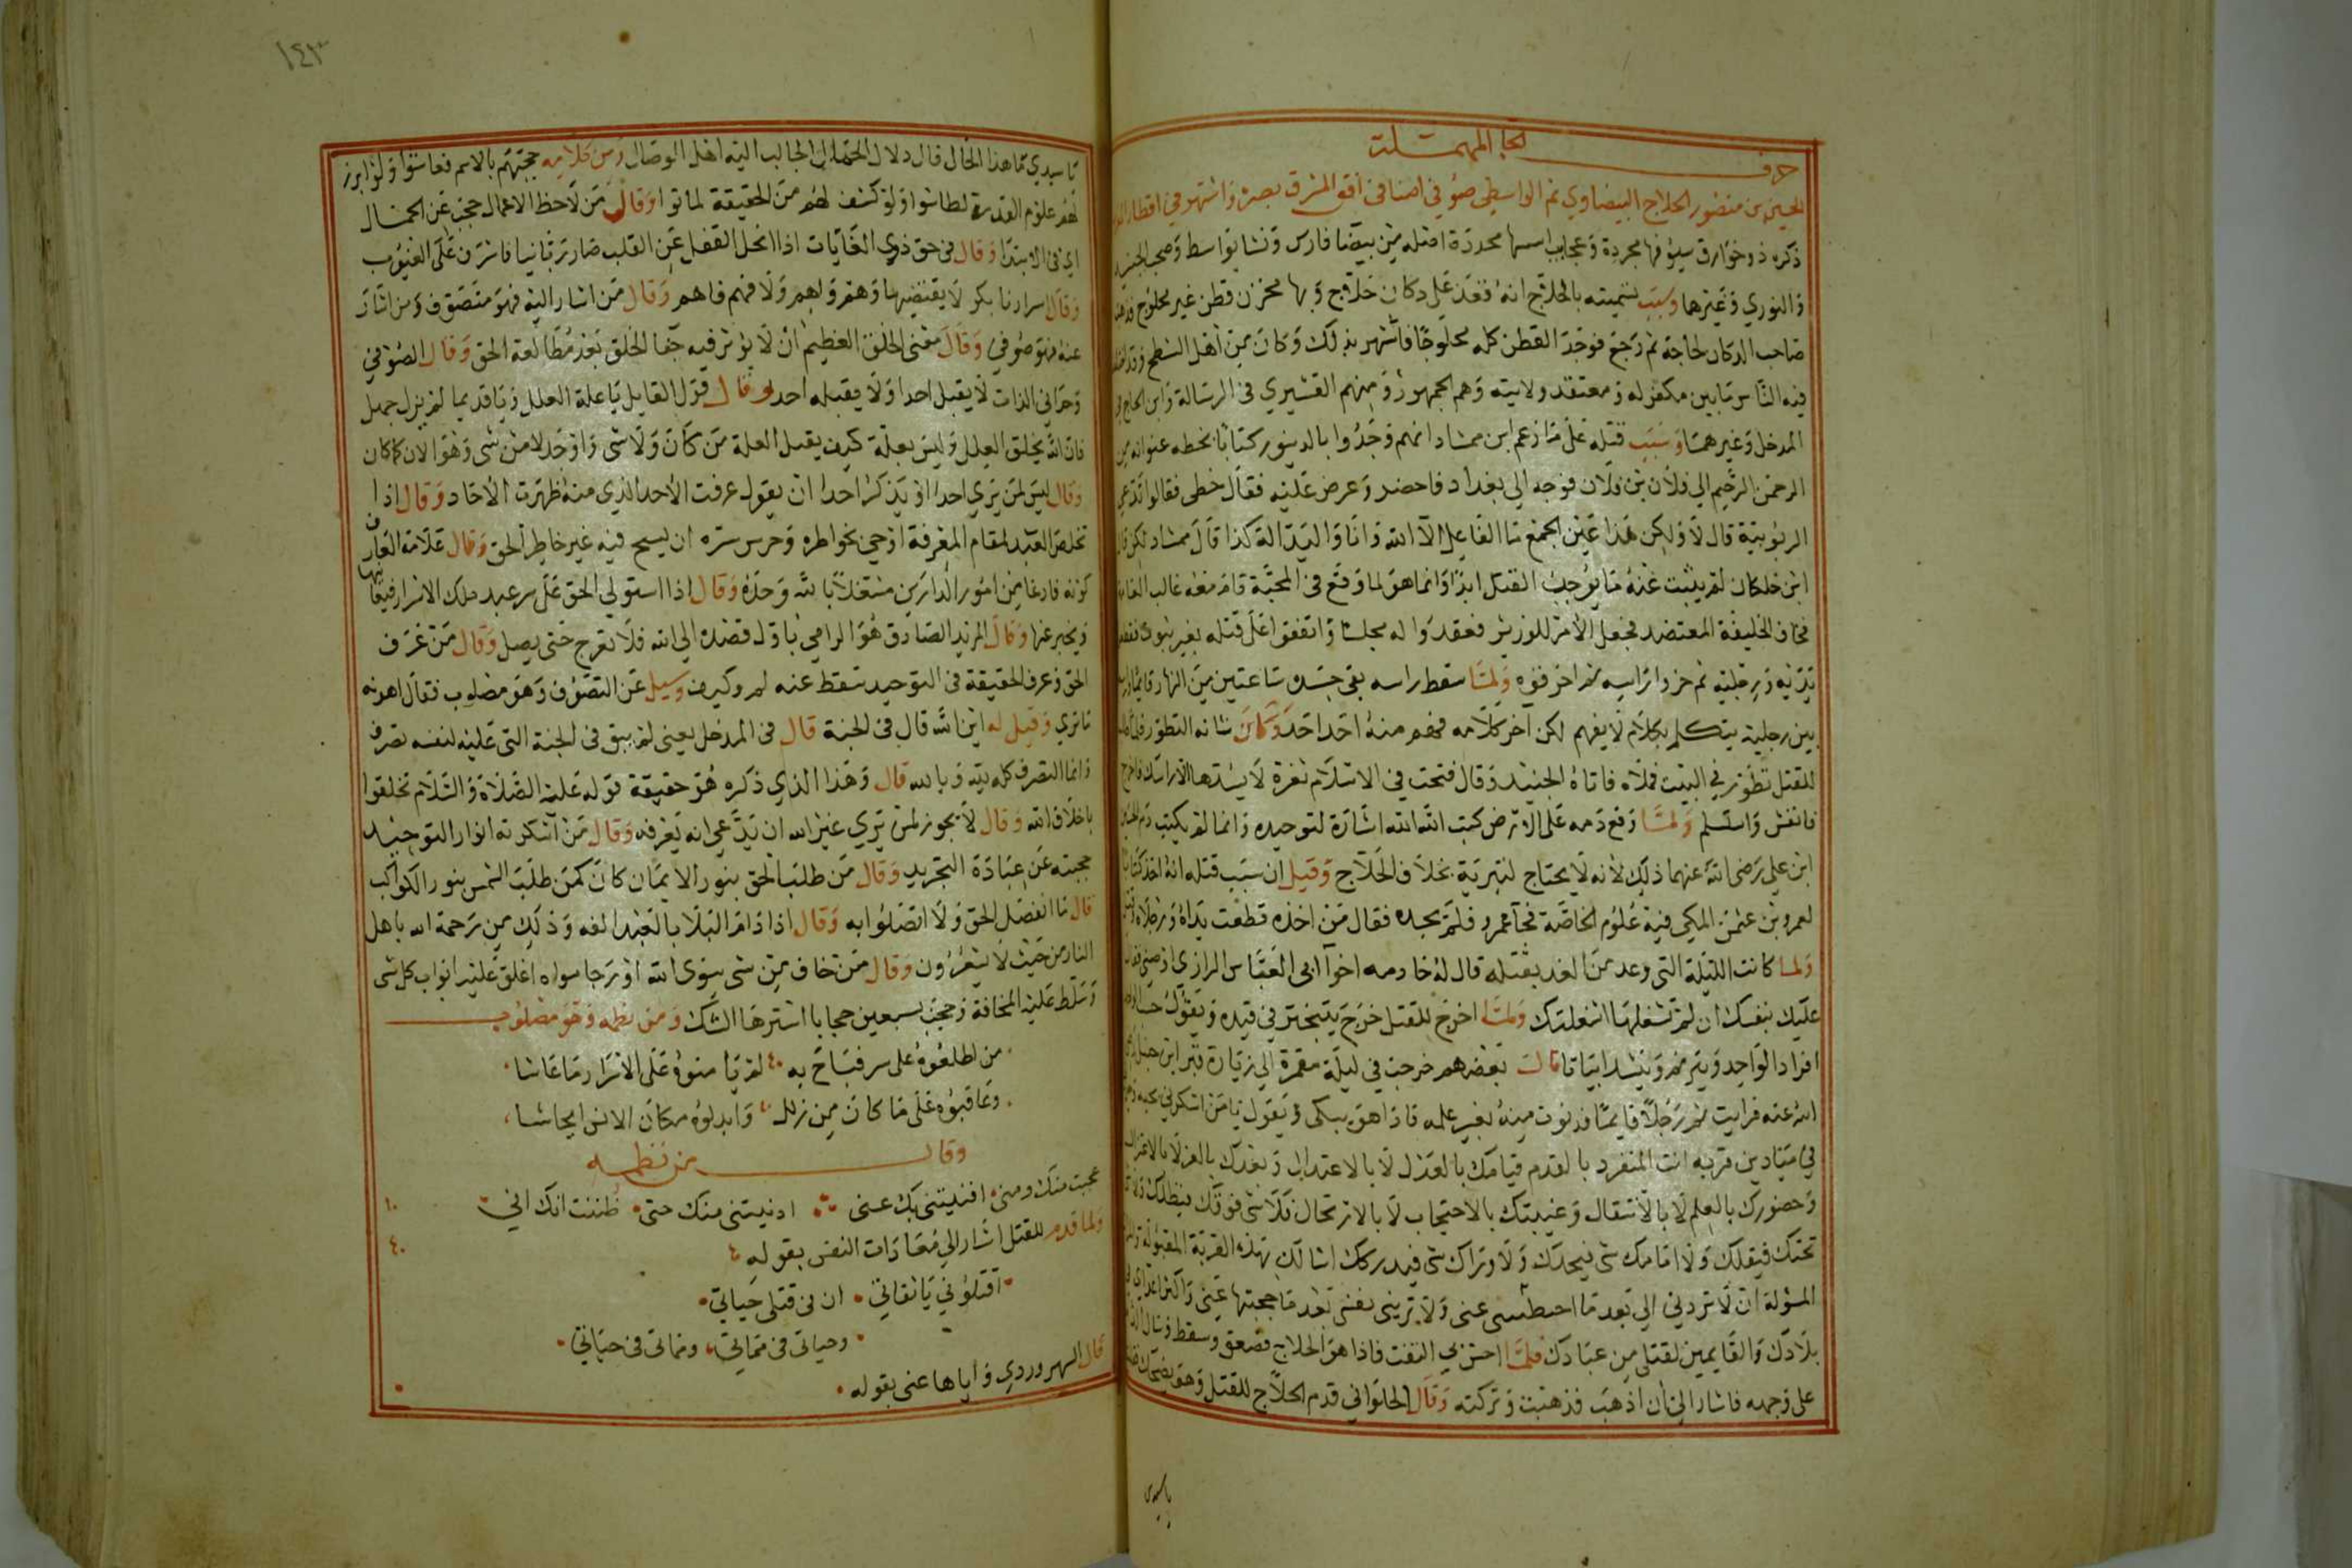 حرف الحا المهملة
الحسين بن منصور الحلاج البيضاوي ثم الواسطي صوفي اضا في افق المشرق بصره واشتهر في اقطار
ذكره ذو خوارق سيوفها مجردة وعجايب اسمها محددة اصله من بيضا فارس ونشا بواسط وصحب الجنيد
والنوري وغيرها وسبب تسميته بالحلاج انه قعد على دكان حلاج وبها مخزن قطن غير محلوج فذهب
صاحب الدكان لحاجة ثم رجع فوجد القطن كله محلوجا فاشتهر بذلك وكان من اهل الشطح وقد
فيه الناس ما بين مكفر له ومعتقد ولايته وهم الجمهور ومنهم القشيري في الرسالة وابن الحاج في
المدخل وغيرهما وسبب قتله على ما زعم ابن ممشاد انهم وجدوا بالدينور كتابا بخطه عنوانه من
الرحمن الرحيم الي فلان بن فلان فوجه الي بغداد فاحضر وعرض عليه فقال خطي فقالوا تدعي
الربوبية قال لا ولكن هذا عين الجمع ما الفاعل الا الله وانا واليد الة كذا قال ممشاد لكن قال
ابن خلكان لم يثبت عنه ما يوجب القتل ابدا وانما هو لما وقع في المحبة قام معه غالب العامة
فخاف الخليفة المعتضد فجعل الامر للوزير فعقدوا له مجلسا واتفقوا على قتله بغير
يديه ورجليه ثم حز راسه ثم احرقوه ولما سقط راسه بقي جسده ساعتين من النهار قايما
بين رجليه يتكلم بكلام لا يفهم لكن اخر كلامه فهم منه احد احد وكان شانه التطور فلما
للقتل تطور في البيت فملاه فاتاه الجنيد وقال فتحت في الاسلام ثغرة لا يسدها الا راسك فاخرج
فانفش واستسلم ولما وقع دمه على الارض كتب الله الله اشارة لتوحيده وانما لم يكتب دم الحسين
ابن علي رضي الله عنهما ذلك لانه لا يحتاج لتبرية بخلاف الحلاج وقيل ان سبب قتله انه اخذ كتابا
لعمرو بن عثمن المكي فيه علوم الخاصة فجآ عمرو فلم يجده فقال من اخذه قطعت يداه ورجلاه
ولما كانت الليلة التي وعد من الغد بقتله قال له خادمه اخو ابي العباس الرازي اوصني فقال
عليك بنفسك ان لم تشغلها اشغلتك ولما اخرج للقتل خرج يتبختر في قيده ويقول حسب
افراد الواحد ويترنم وينشد ابياتا قالت بعضهم خرجت في ليلة مقمرة الي زيارة قبر ابن حنبل
الله عنه فرايت ثم رجلا قايما فدنوت منه بغير علمه فاذا هو يبكي ويقول يا من اسكرني بحبه
في ميادين قربه انت المنفرد بالقدم قيامك بالعدل لا بالاعتدال وبعدك بالعزلا بالاعتزال
وحضورك بالعلم لا بالانتقال وغيبتك بالاحتجاب لا بالارتحال فلا شي فوقك فيظلك ولا
تحتك فيقلك ولا امامك شي فيحدك ولا وراك شي فيدركك اسالك بهذه القربة المقبولة
المسؤلة ان لا تردني الي بعد ما اختطفتني عني ولا تريني نفسي بعد ما حجبتها عني واكثر اعداي في
بلادك والقايمين لقتلي من عبادك فلما احس بي التفت فاذا هو الحلاج فصعق وسقط وسال
على وجهه فاشار الي ان اذهب فذهبت وتركته وقال الحلواني قدم الحلاج للقتل وهو يضحك
يا سيدي
١٤٣
يا سيدي ما هذا الحال قال دلال الجمال الجالب اليه اهل الوصال ومن كلامه حجبتهم بالاسم فعاشوا ولو ابرز
لهم علوم القدرة لطاشوا ولو كشف لهم من الحقيقة لماتوا وقال من لاحظ الاعمال حجب عن الجمال
اي في الابتدا وقال في حق ذوي الغايات اذا انحل القفل عن القلب صار ربانيا فاشرف على الغيوب
وقال اسرارنا بكر لا يفتضها وهم ولا فهم فاهم وقال من اشار اليه فهو متصوف ومن اشار
عنه فهو صوفي وقال معنى الخلق العظيم ان لا يوثر فيه جفا الخلق بعد مطالعة الحق وقال الصوفي
وحداني الذات لا يقبل احدا ولا يقبله احد وقال قول القايل يا علة العلل ويا قديما لم يزل جهل
فان الله يخلق العلل وليس بعلة كيف يقبل العلة من كان ولا شي واوجد لا من شي وهو الان كما كان
وقال ليس لمن يري احدا او يذكر احدا ان يقول عرفت الاحد الذي منه ظهرت الاحاد وقال اذا
تخلص العبد لمقام المعرفة اوحي بخواطره وحرس سره ان يسيح فيه غير خاطر الحق وقال علامة العارف
كونه فارغا من امور الدارين مشتغلا بالله وحده وقال اذا استولي الحق على سر عبد ملك الاسرار فيعاينها
ويخبر عنها وقال المريد الصادق هو الرامي باول قصده الي الله فلا يعرج حتى يصل وقال من عرف
الحق وعرف الحقيقة في التوحيد سقط عنه لم وكيف وسيل عن التصوف وهو مصلوب فقال اهونه
ما تري وقيل له اين الله قال في الجبة قال في المدخل يعني لم يبق في الجبة التي عليه لنفسه تصرف
وانما التصرف كله بيد وبالله قال وهذا الذي ذكره هو حقيقة قوله عليه الصلاة والسلام تخلقوا
باخلاق الله وقال لا يجوز لمن يري غير الله ان يدعي انه يعرفه وقال من اسكرته انوار التوحيد
حجبته عن عبادة التجريد وقال من طلب الحق بنور الايمان كان كمن طلب الشمس بنور الكواكب
قال ما انفصل الحق ولا اتصلوا به وقال اذا دام البلا بالعبد الفه وذلك من رحمة الله باهل
النار من حيث لا يشعرون وقال من خاف من شي سوى الله او رجا سواه اغلق عليه ابواب كل شي
وسلط عليه المخافة وحجب بسبعين حجابا استرها الشك ومن نظمه وهو مصلوب
من اطلعوه على سر فباح به لم يامنوه على الاسرار ما عاشا
وعاقبوه على ما كان من زلل وابدلوه مكان الانس ايحاشا
وقال من نظمه
عجبت منك ومني افنيتني بك عني ادنيتني منك حتى ظننت انك اني
ولما قدم للقتل اشار الي معادات النفس بقوله
اقتلوني يا ثقاتي ان في قتلي حياتي
وحياتي في مماتي ومماتي في حياتي
قال السهروردي واياها عني بقوله